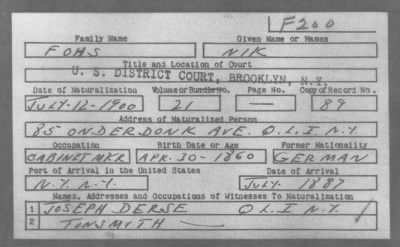 F200
Family Name Given Name or Names
FOHS NIK
Title and Location of Court
U. S. DISTRICT COURT, BROOKLYN, N.Y.
Date of Naturalization Volume or Bundle No. Page No. Copy of Record No.
JULY-12-1900 21 — 89
Address of Naturalized Person
85 ONDERDONK AVE. O.L.I. N.Y.
Occupation Birth Date or Age Former Nationality
CABINET MKR APR-30-1860 GERMAN
Port of Arrival in the United States Date of Arrival
N.Y. N.Y. JULY-1887
Names, Addresses and Occupations of Witnesses To Naturalization
1 JOSEPH DERSE O L I N.Y.
2 TINSMITH